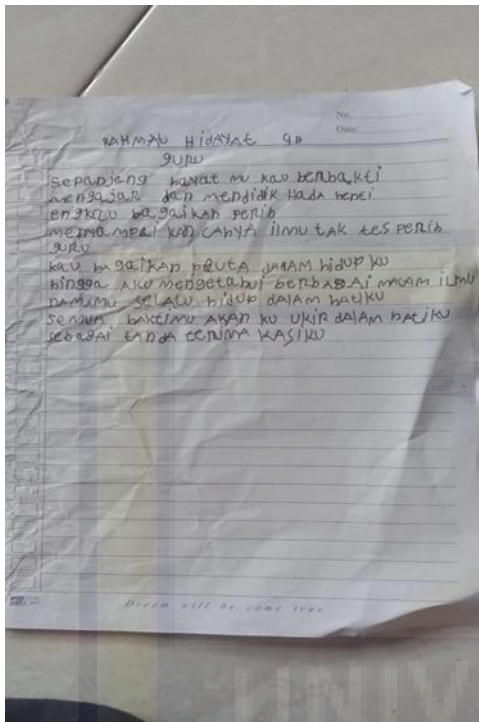 No.
Date:
RAHMAt HidAYAt 9D
guru
sepanjang hayat mu kau berbakti
mengajar dan mendidik tiada henti
engkau bagaikan perih
menyampai kan cahya ilmu tak tes perih
guru
kau bagaikan pluta dalam hidup ku
hingga aku mengetahui berbagai macam ilmu
namamu selalu hidup dalam hatiku
semua baktimu akan ku ukir dalam hatiku
sebagai tanda terima kasiku
Dream will be come true
UNIV